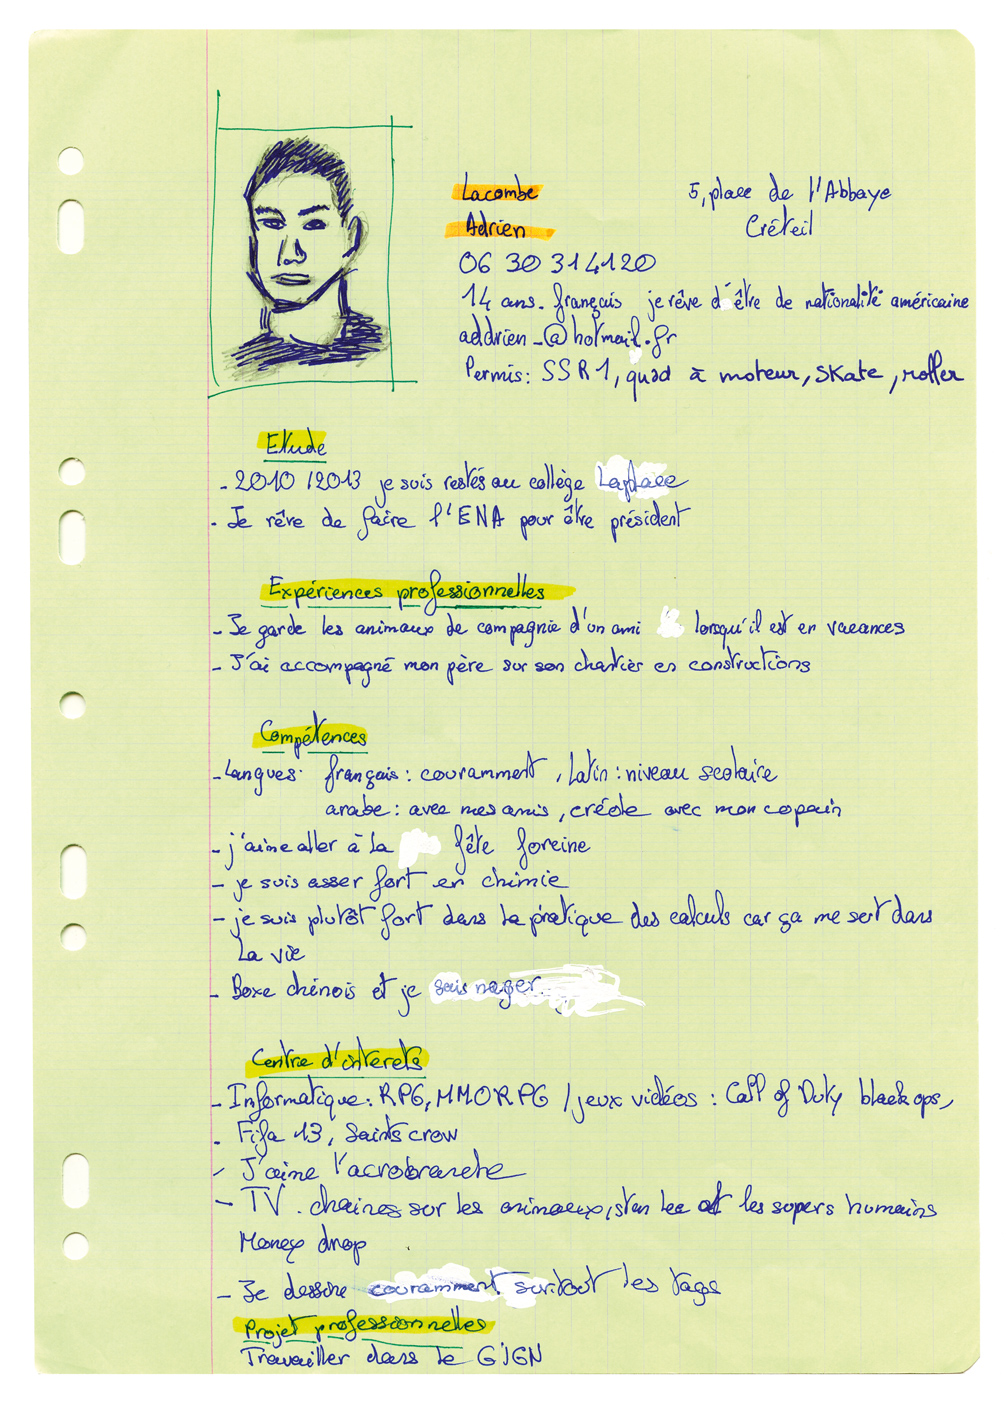 Lacombe
Adrien
5, place de l'Abbaye
Créteil
06 30 31 41 20
14 ans. français je rêve d'être de nationalité américaine
addrien_@hotmail.fr
Permis: SSR1, quad à moteur, skate, roller
Etude
- 2010 / 2013 je suis restés au collège Laplace
- Je rêve de faire l'ENA pour être président
Expériences professionnelles
- Je garde les animaux de compagnie d'un ami lorsqu'il est en vacances
- J'ai accompagné mon père sur son chantier en constructions
Compétences
- Langues: français: couramment, Latin: niveau scolaire
arabe: avec mes amis, créole avec mon copain
- j'aime aller à la fête foreine
- je suis asser fort en chimie
- je suis plutôt fort dans la pratique des calculs car ça me sert dans
la vie
- Boxe chinois et je sais nager
Centre d'interets
- Informatique: RPG, MMORPG / jeux vidéos: Call of Duty black ops,
- Fifa 13, Saints crow
- J'aime l'acrobranche
- TV. chaines sur les animaux, stan lee et les supers humains
Money drop
- Je dessine couramment surtout les tags
Projet professionnelles
Travailler dans le GIGN